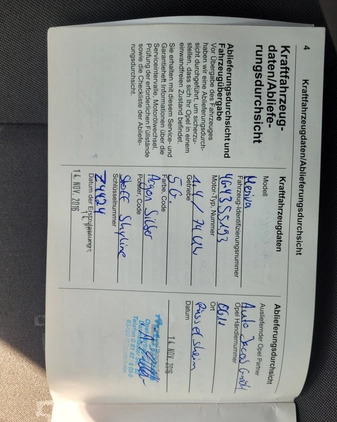 4
Kraftfahrzeugdaten/Ablieferungsdurchsicht
Kraftfahrzeug-
daten/Abliefe-
rungsdurchsicht
Ablieferungsdurchsicht und
Fahrzeugübergabe
Vor Übergabe des Fahrzeuges
haben wir eine Ablieferungsdurch-
sicht durchgeführt, um sicherzu-
stellen, dass sich Ihr Opel in einem
einwandfreien Zustand befindet.
Sie erhalten mit diesem Service- und
Garantieheft Informationen über die
Serviceintervalle, Motorölwechsel,
Prüfung der erforderlichen Füllstände
sowie die Checkliste der Abliefe-
rungsdurchsicht.
Kraftfahrzeugdaten
Modell
Meriva
Fahrzeug-Identifizierungsnummer
Motor/Typ, Nummer
Getriebe
5 G.
Farbe, Code
Argon Silber
Polster, Code
Schlüsselnummer
Z4424
Datum der Erstzulassung
14. NOV. 2016
Ablieferungsdurchsicht
Ausliefernder Opel Partner
Opel Händlernummer
Ort
Rüsselsheim
Datum
14. NOV. 2016